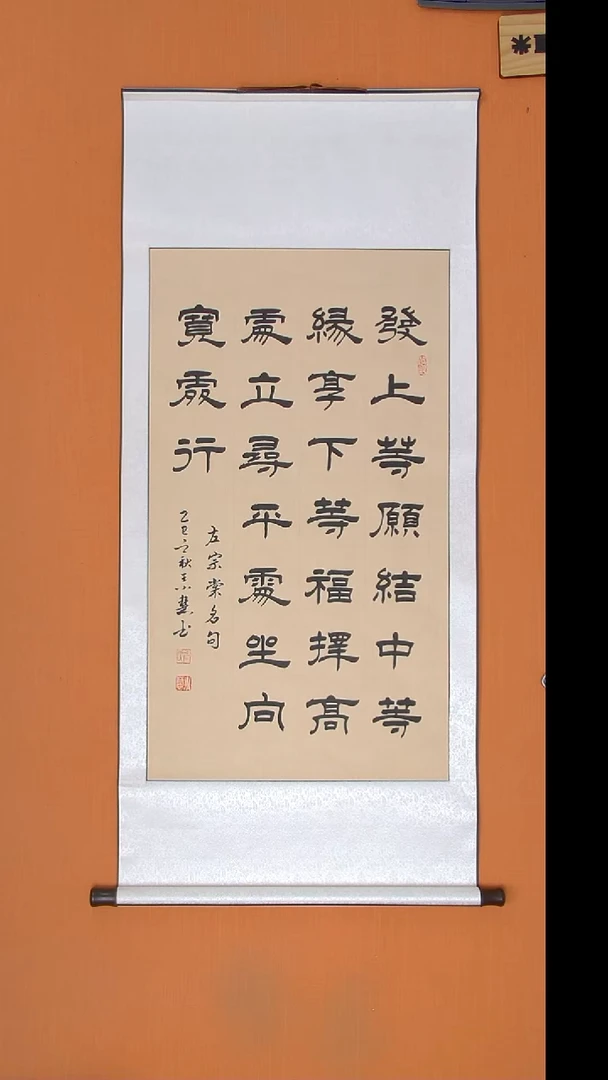 發上等願結中等
緣享下等福擇高
處立尋平處坐向
寬處行
左宗棠名句
乙巳之秋王小書